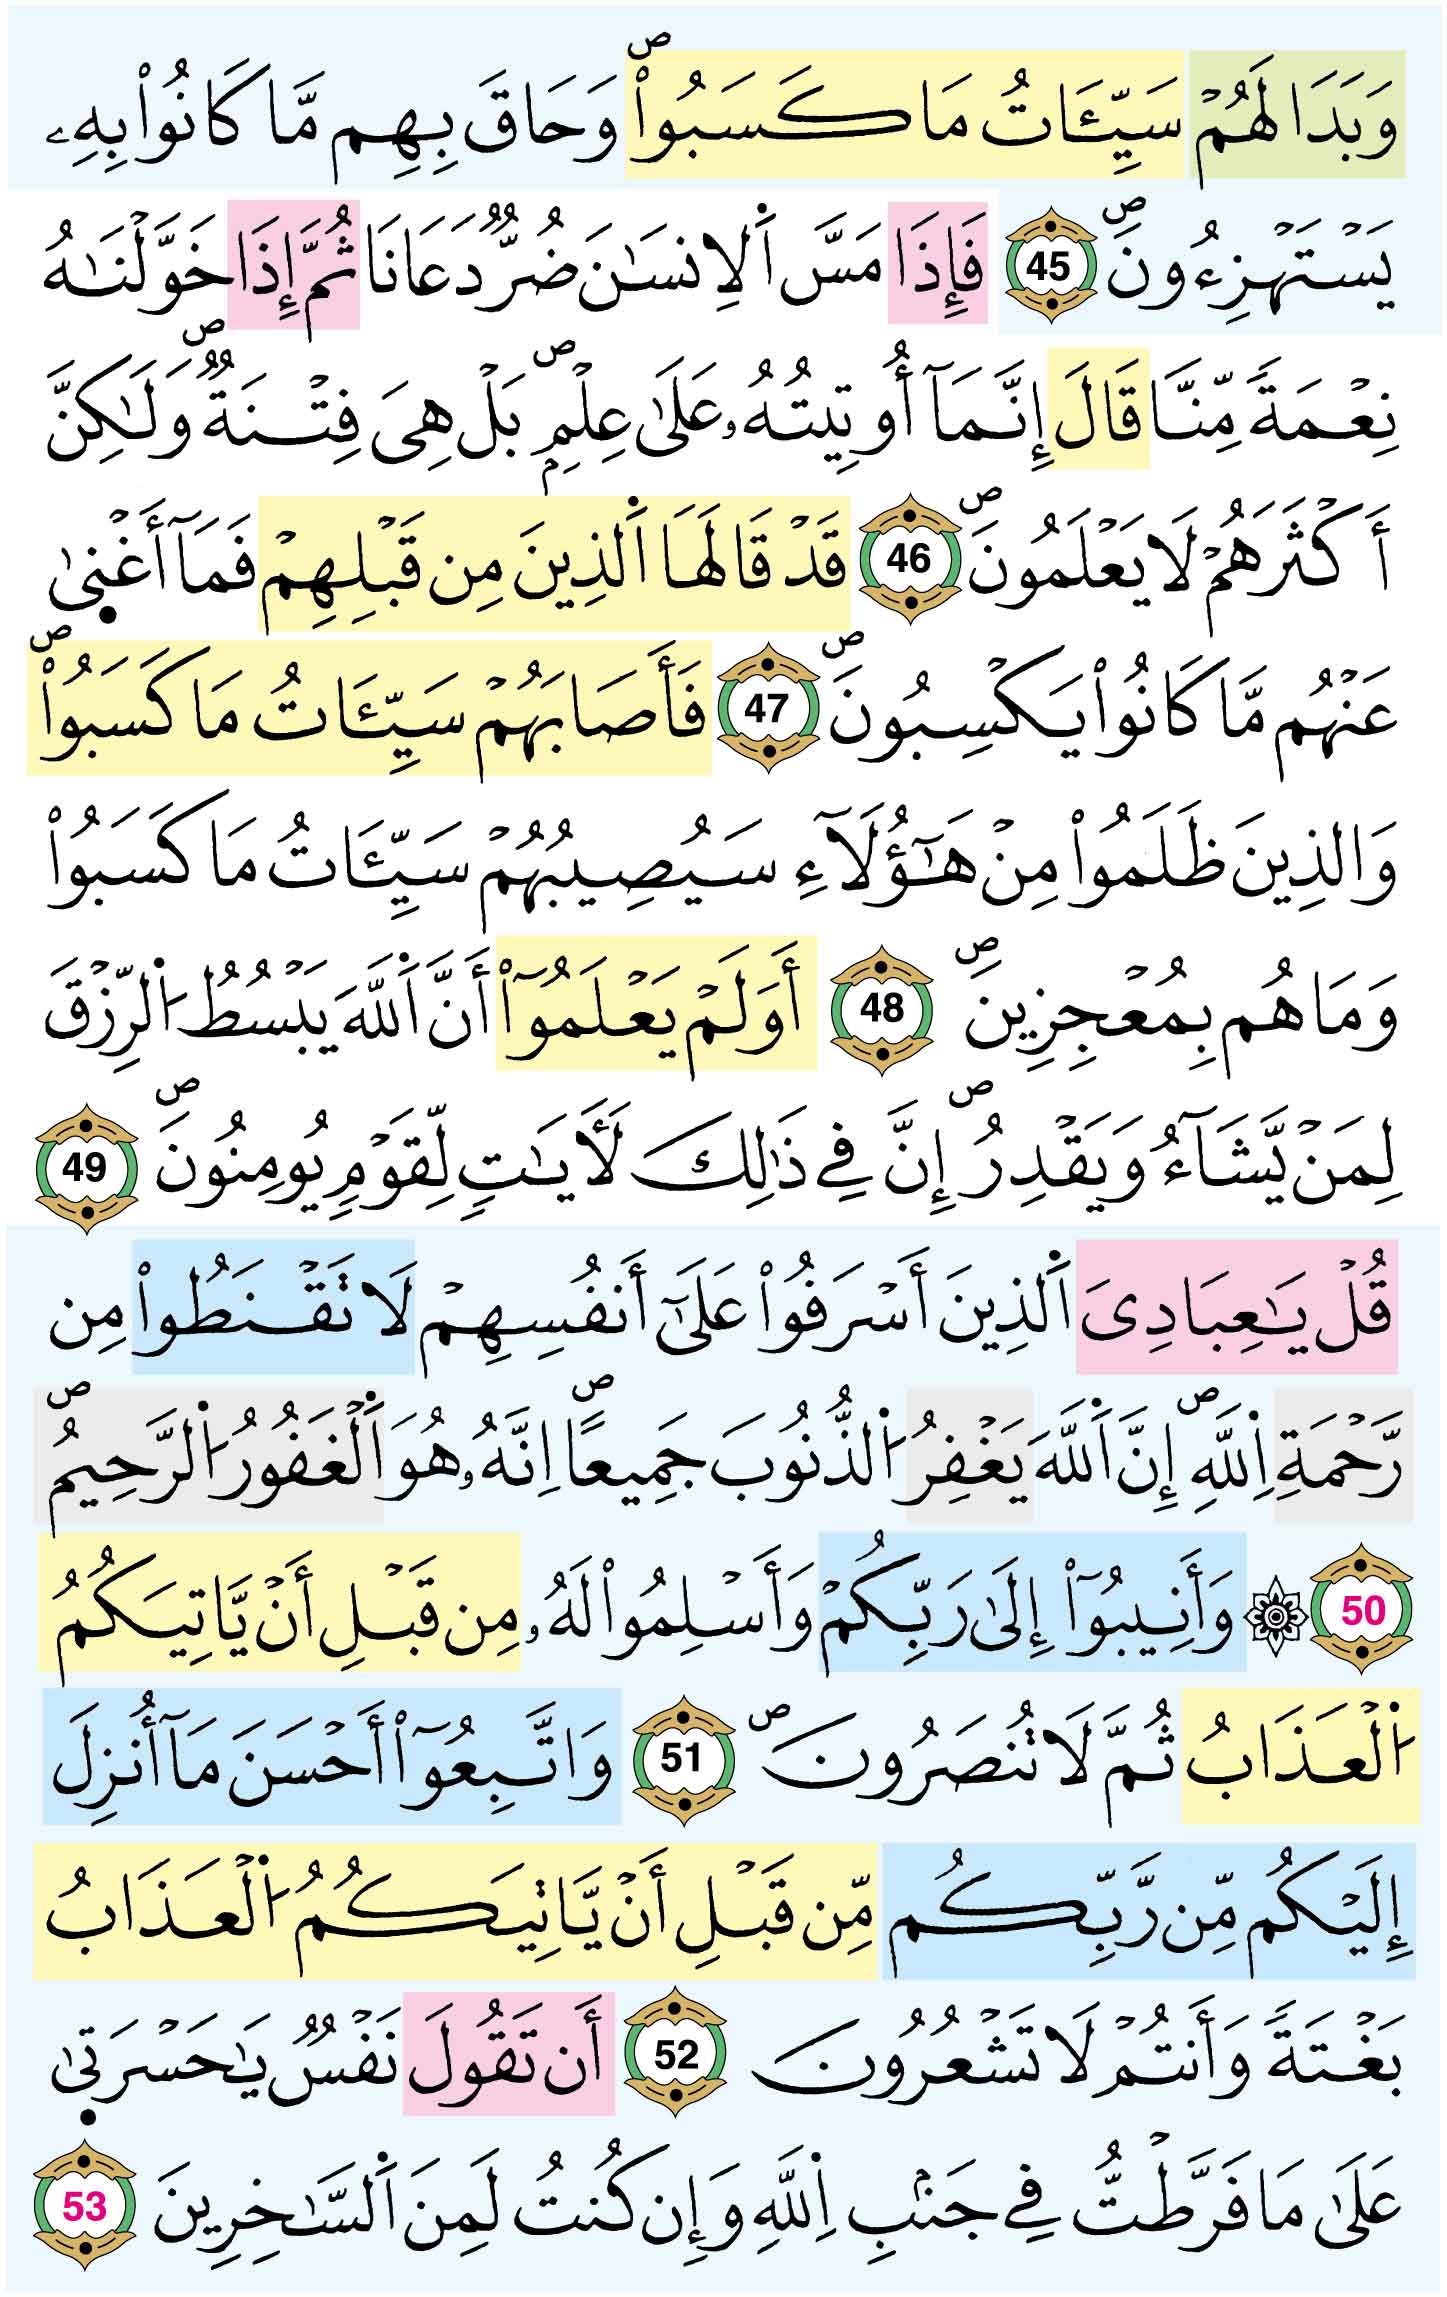 وَبَدَا لَهُمْ سَيِّـَٔاتُ مَا كَسَبُواْۖ وَحَاقَ بِهِم مَّا كَانُواْ بِهِۦ
يَسْتَهْزِءُونَۖ 45 فَإِذَا مَسَّ اَ۬لِانسَٰنَ ضُرّٞ دَعَانَا ثُمَّ إِذَا خَوَّلْنَٰهُ
نِعْمَةٗ مِّنَّا قَالَ إِنَّمَآ أُوتِيتُهُۥ عَلَىٰ عِلْمِۢۖ بَلْ هِيَ فِتْنَةٞۖ وَلَٰكِنَّ
أَكْثَرَهُمْ لَا يَعْلَمُونَۖ 46 قَدْ قَالَهَا اَ۬لذِينَ مِن قَبْلِهِمْ فَمَآ أَغْن۪يٰ
عَنْهُم مَّا كَانُواْ يَكْسِبُونَۖ 47 فَأَصَابَهُمْ سَيِّـَٔاتُ مَا كَسَبُواْۖ
وَالذِينَ ظَلَمُواْ مِنْ هَٰٓؤُلَآءِ سَيُصِيبُهُمْ سَيِّـَٔاتُ مَا كَسَبُواْ
وَمَا هُم بِمُعْجِزِينَۖ 48 أَوَلَمْ يَعْلَمُوٓاْ أَنَّ اَ۬للَّهَ يَبْسُطُ اُ۬لرِّزْقَ
لِمَنْ يَّشَآءُ وَيَقْدِرُۖ إِنَّ فِے ذَٰلِكَ لَأٓيَٰتٖ لِّقَوْمٖ يُومِنُونَۖ 49
قُلْ يَٰعِبَادِيَ اَ۬لذِينَ أَسْرَفُواْ عَلَىٰٓ أَنفُسِهِمْ لَا تَقْنَطُواْ مِن
رَّحْمَةِ اِ۬للَّهِۖ إِنَّ اَ۬للَّهَ يَغْفِرُ اُ۬لذُّنُوبَ جَمِيعاًۖ اِنَّهُۥ هُوَ اَ۬لْغَفُورُ اُ۬لرَّحِيمُۖ
50 ۞ وَأَنِيبُوٓاْ إِلَىٰ رَبِّكُمْ وَأَسْلِمُواْ لَهُۥ مِن قَبْلِ أَنْ يَّاتِيَكُمُ
اُ۬لْعَذَابُ ثُمَّ لَا تُنصَرُونَۖ 51 وَاتَّبِعُوٓاْ أَحْسَنَ مَآ أُنزِلَ
إِلَيْكُم مِّن رَّبِّكُم مِّن قَبْلِ أَنْ يَّاتِيَكُمُ اُ۬لْعَذَابُ
بَغْتَةٗ وَأَنتُمْ لَا تَشْعُرُونَ 52 أَن تَقُولَ نَفْسٞ يَٰحَسْرَت۪يٰ
عَلَىٰ مَا فَرَّطْتُّ فِے جَنۢبِ اِ۬للَّهِ وَإِن كُنتُ لَمِنَ اَ۬لسَّٰخِرِينَ 53